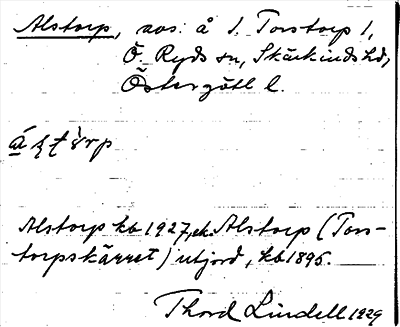 Alstorp, avs. å 1. Torstorp 1,
Ö. Ryds sn, Skärkinds hd,
Östergötl l.
Alstorp kb 1927, Alstorp (Tors-
torpskärret) utjord, kb 1895.
Thord Lindell 1929